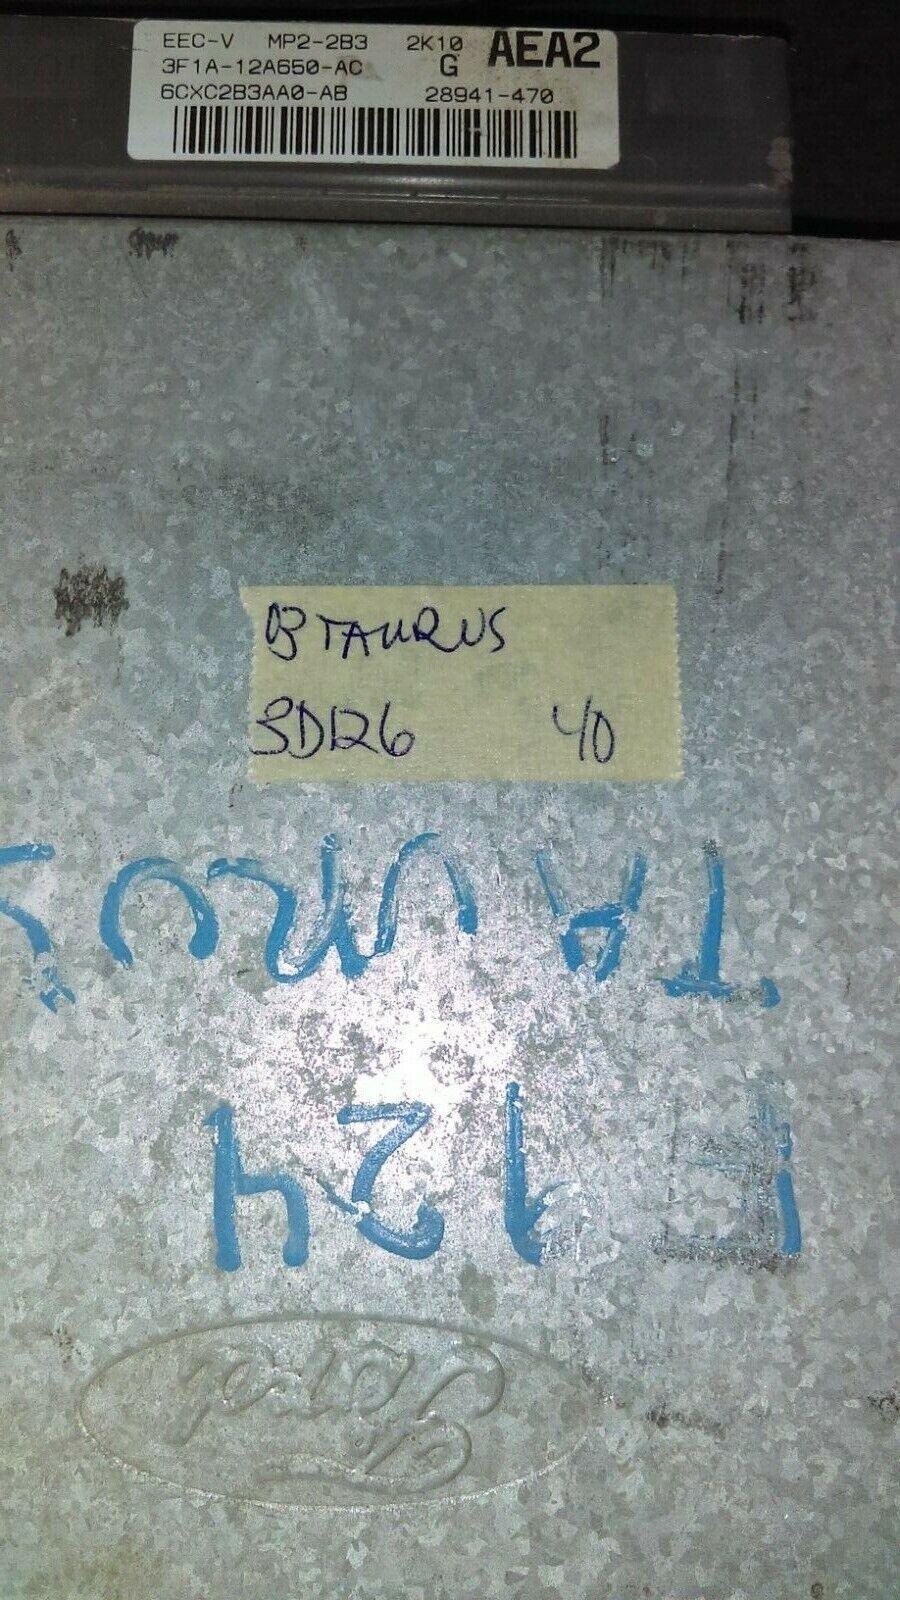 EEC-V MP2-2B3 2K10 AEA2
3F1A-12A650-AC G
6CXC2B3AA0-AB 28941-470
03 TAURUS
3D126 40
TAURUS
E124
Ford